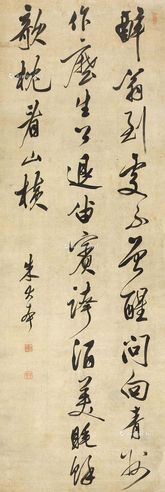 醉翁到處不曾醒問向青州
作麼生公退留賓誇酒美睡餘
欹枕看山橫
朱大年